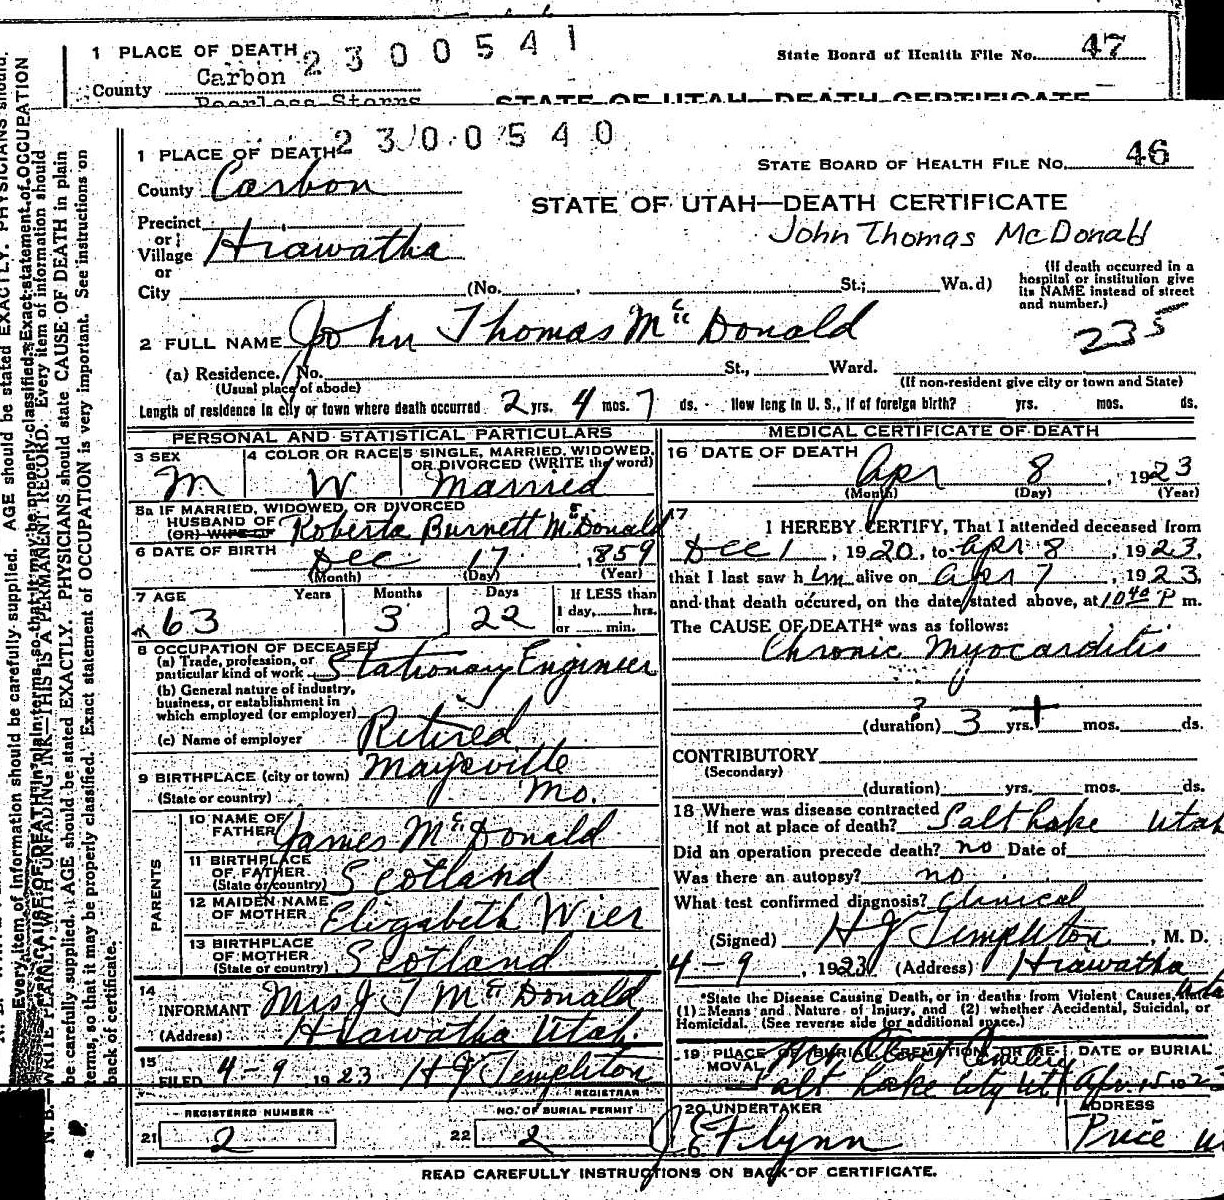 1 PLACE OF DEATH 2300541
State Board of Health File No. 47
County Carbon
Peerless Storrs
STATE OF UTAH—DEATH CERTIFICATE
2300540
1 PLACE OF DEATH
STATE BOARD OF HEALTH FILE NO. 46
County Carbon
STATE OF UTAH—DEATH CERTIFICATE
John Thomas McDonald
Precinct
or
Village Hiawatha
or
City (No. , St.; Wa.d)
(If death occurred in a
hospital or institution give
its NAME instead of street
and number.)
235
2 FULL NAME John Thomas McDonald
(a) Residence. No. St., Ward.
(Usual place of abode)
(If non-resident give city or town and State)
Length of residence in city or town where death occurred 2 yrs. 4 mos. 7 ds. How long in U. S., if of foreign birth? yrs. mos. ds.
PERSONAL AND STATISTICAL PARTICULARS
3 SEX M
4 COLOR OR RACE W
5 SINGLE, MARRIED, WIDOWED,
OR DIVORCED (WRITE the word)
Married
5a IF MARRIED, WIDOWED, OR DIVORCED
HUSBAND OF
(OR) WIFE OF Roberta Burnett McDonald
6 DATE OF BIRTH Dec 17, 1859
(Month) (Day) (Year)
7 AGE Years Months Days If LESS than
1 day, hrs.
or min.
63 3 22
8 OCCUPATION OF DECEASED
(a) Trade, profession, or
particular kind of work Stationary Engineer
(b) General nature of industry,
business, or establishment in
which employed (or employer)
Retired
(c) Name of employer
9 BIRTHPLACE (city or town) Maysville
(State or country) Mo.
PARENTS
10 NAME OF
FATHER James McDonald
11 BIRTHPLACE
OF FATHER
(State or country) Scotland
12 MAIDEN NAME
OF MOTHER Elizabeth Wier
13 BIRTHPLACE
OF MOTHER
(State or country) Scotland
14
INFORMANT Mrs J T McDonald
(Address) Hiawatha Utah.
15
FILED 4-9 1923 H J Templeton
REGISTRAR
REGISTERED NUMBER
21 2
NO. OF BURIAL PERMIT
22 2
MEDICAL CERTIFICATE OF DEATH
16 DATE OF DEATH
Apr 8, 1923
(Month) (Day) (Year)
17
I HEREBY CERTIFY, That I attended deceased from
Dec 1, 1920, to Apr 8, 1923,
that I last saw him alive on Apr 7, 1923,
and that death occured, on the date stated above, at 10 40 P m.
The CAUSE OF DEATH* was as follows:
Chronic Myocarditis
?
(duration) 3 yrs. + mos. ds.
CONTRIBUTORY
(Secondary)
(duration) yrs. mos. ds.
18 Where was disease contracted
If not at place of death? Salt Lake Utah
Did an operation precede death? no Date of
Was there an autopsy? no
What test confirmed diagnosis? Clinical
(Signed) H J Templeton, M. D.
4-9, 1923 (Address) Hiawatha
Utah
*State the Disease Causing Death, or in deaths from Violent Causes, state
(1) Means and Nature of Injury, and (2) whether Accidental, Suicidal, or
Homicidal. (See reverse side for additional space.)
19 PLACE OF BURIAL, CREMATION, OR RE-
MOVAL Mt Olivet Cemetery
Salt Lake City Ut
DATE OF BURIAL
Apr. 15 1923
20 UNDERTAKER
J E Flynn
ADDRESS
Price
READ CAREFULLY INSTRUCTIONS ON BACK OF CERTIFICATE.
N. B.—WRITE PLAINLY, WITH UNFADING INK—THIS IS A PERMANENT RECORD. Every item of information should
be carefully supplied. AGE should be stated EXACTLY. PHYSICIANS should state CAUSE OF DEATH in plain
terms, so that it may be properly classified. Exact statement of OCCUPATION is very important. See instructions on
back of certificate.